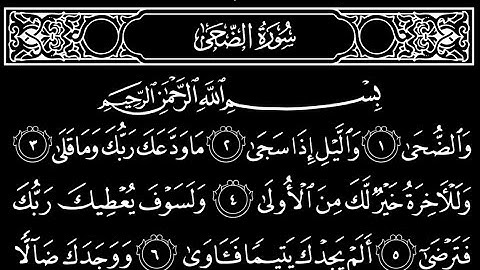 سُورَةُ الضُّحَىٰ
بِسْمِ اللَّهِ الرَّحْمَٰنِ الرَّحِيمِ
وَالضُّحَىٰ ١ وَالَّيْلِ إِذَا سَجَىٰ ٢ مَا وَدَّعَكَ رَبُّكَ وَمَا قَلَىٰ ٣
وَلَلْآخِرَةُ خَيْرٌ لَّكَ مِنَ الْأُولَىٰ ٤ وَلَسَوْفَ يُعْطِيكَ رَبُّكَ
فَتَرْضَىٰ ٥ أَلَمْ يَجِدْكَ يَتِيمًا فَـَٔاوَىٰ ٦ وَوَجَدَكَ ضَآلًّا